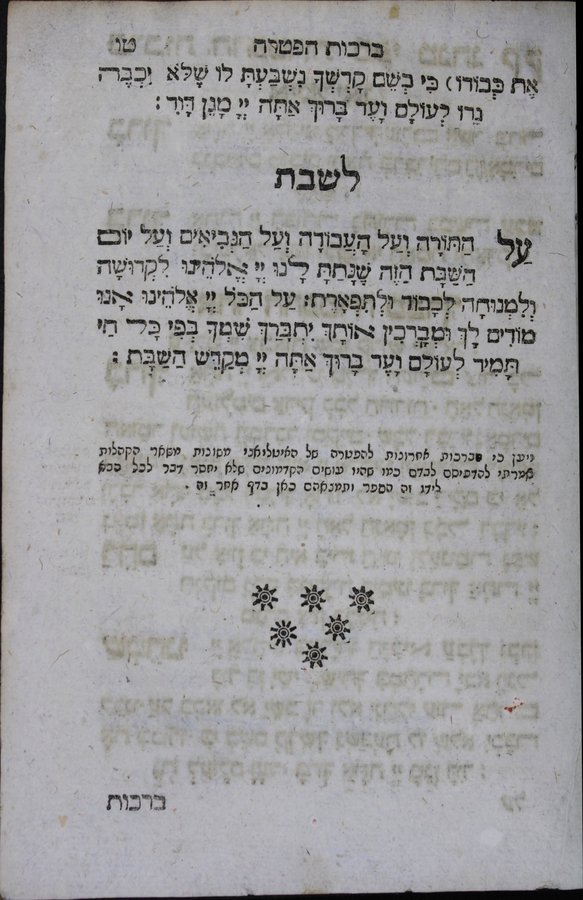 ברכות הפטרה טו
את כבודו) כי בשם קדשך נשבעת לו שלא יכבה
נרו לעולם ועד ברוך אתה יי מגן דוד :
לשבת
על התורה ועל העבודה ועל הנביאים ועל יום
השבת הזה שנתת לנו יי אלהינו לקדושה
ולמנוחה לכבוד ולתפארת: על הכל יי אלהינו אנו
מודים לך ומברכין אותך יתברך שמך בפי כל חי
תמיד לעולם ועד ברוך אתה יי מקדש השבת :
ויען כי ברכות אחרונות להפטרה של האיטליאני משונות משאר הקהלות
אמרתי להדפיסם לבדם כמו שהיו עושים הקדמונים שלא יחסר דבר לכל הבא
לידו זה הספר ותמצאהם כאן בדף אחר זה .
ברכות